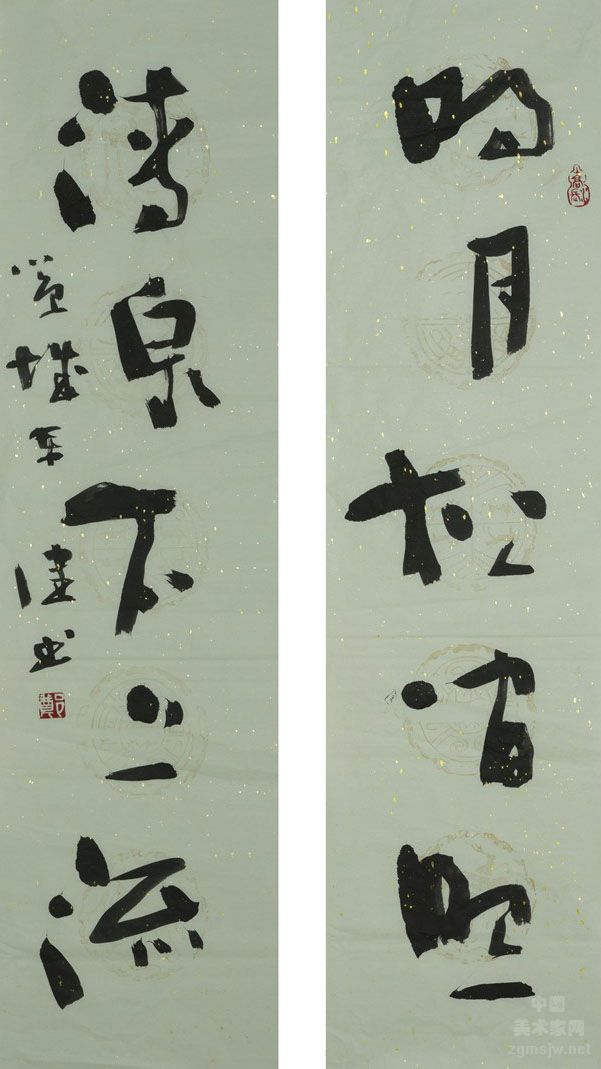 明月松間照
清泉石上流
中国
美术家网
zgmsjw.net